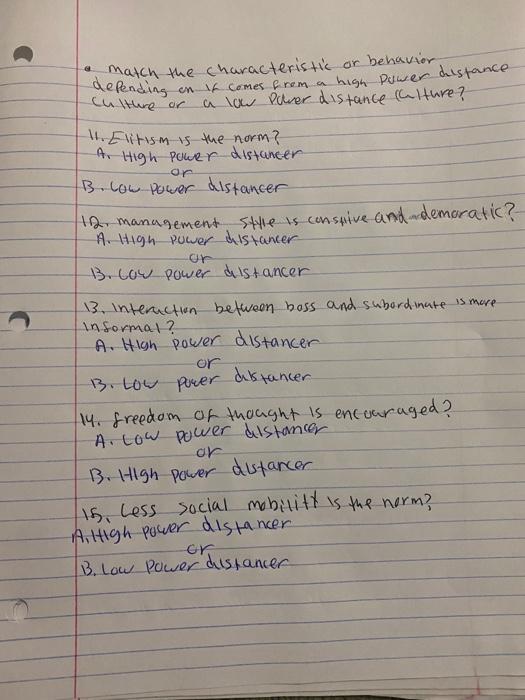 • match the characteristic or behavior
depending on if comes from a high power distance
culture or a low Power distance culture?
11. Elitism is the norm?
A. High power distancer
or
B. Low power distancer
12. management style is conspive and demoratic?
A. High power distancer
or
B. Low power distancer
13. Interaction between boss and subordinate is more
informal?
A. High power distancer
or
B. Low power distancer
14. freedom of thought is encouraged?
A. Low power distancer
or
B. High power distancer
15. Less social mobility is the norm?
A. High power distancer
or
B. Low Power distancer